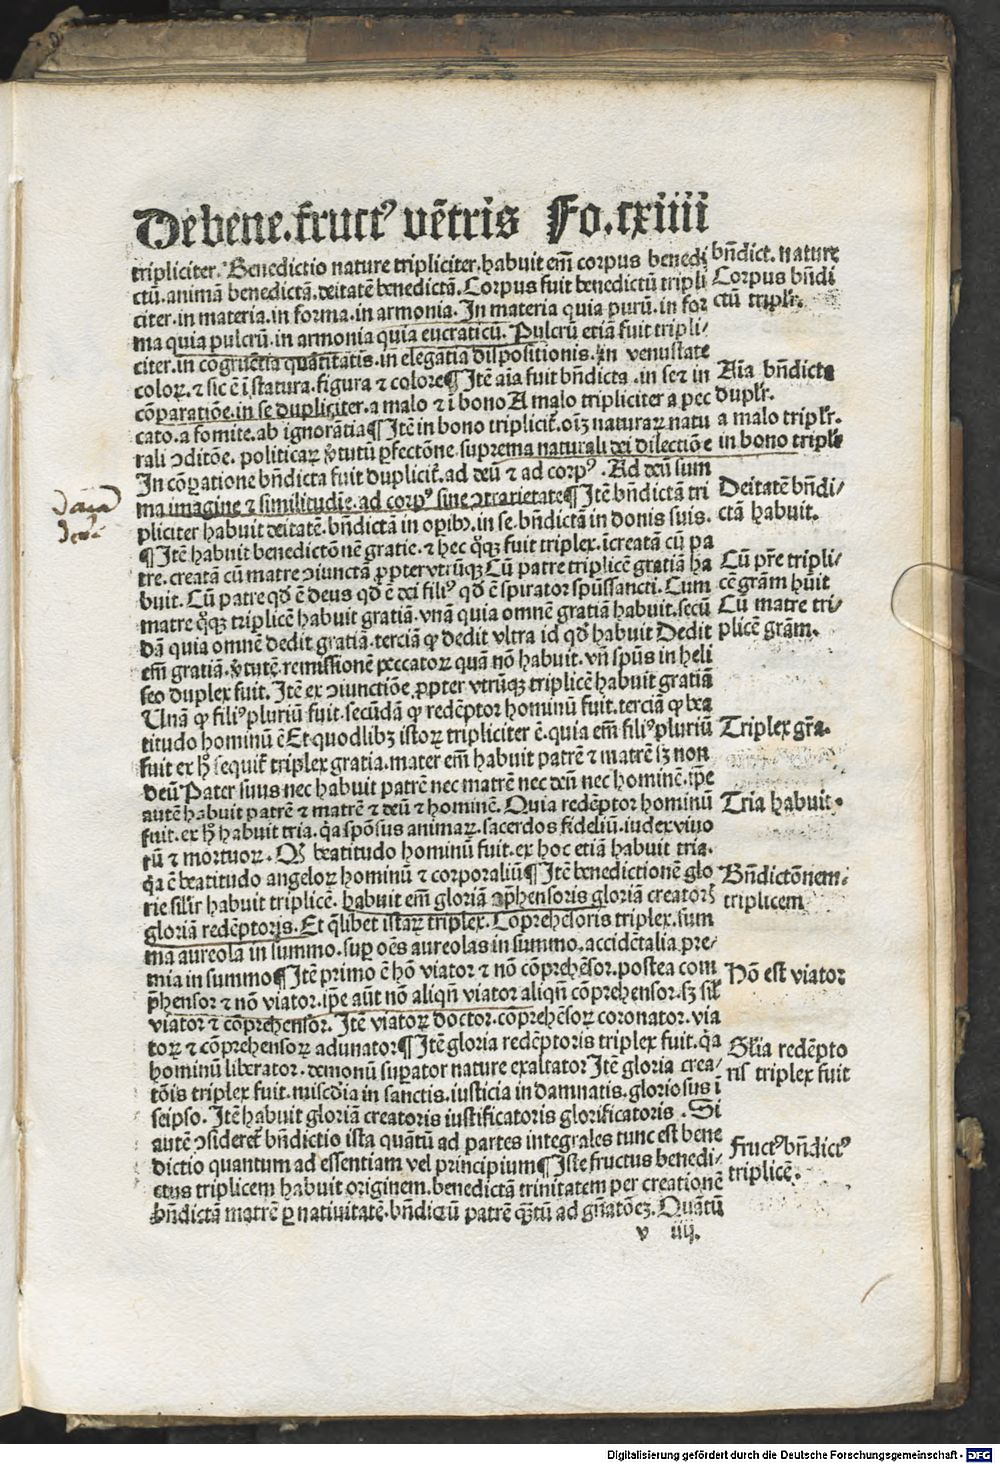 De bene. fructꝰ vētris Fo. cxiiii
tripliciter. Benedictio nature tripliciter. habuit em̄ corpus benedi
ctū. animā benedictā. deitatē benedictā. Corpus fuit benedictū tripli
citer. in materia. in forma. in armonia. In materia quia purū. in for
ma quia pulcrū. in armonia quia eucraticū. Pulcrū etiā fuit tripli/
citer. in cōgruētia quātitatis. in elegātia dispositionis. in venustate
coloꝝ. ⁊ sic ē ī statura. figura ⁊ colore ¶ Itē aīa fuit bn̄dicta. in se ⁊ in
cōparatiōe. in se dupliciter. a malo ⁊ ī bono A malo tripliciter a pec
cato. a fomite. ab ignorātia ¶ Itē in bono triplicit̄. oīm̄ naturaꝝ natu
rali ↄditōe. politicaꝝ v̓tutū ꝑfectōne. suprema naturali dei dilectiōe
In cōꝑatione bn̄dicta fuit duplicit̄. ad deū ⁊ ad corpꝰ. Ad deū sum
ma imagine ⁊ similitudīe. ad corpꝰ sine ↄtrarietate ¶ Itē bn̄dictā tri
pliciter habuit deitatē. bn̄dictā in oꝑibꝫ. in se. bn̄dictā in donis suis.
¶ Itē habuit benedictōnē gratie. ⁊ hec qͦqꝫ fuit triplex. īcreatā cū pa
tre. creatā cū matre ↄiunctā ꝓpter vtrūqꝫ Cū patre triplicē gratiā ha
buit. Cū patre qd̓ ē deus qd̓ ē dei filiꝰ qd̓ ē spirator spūssancti. Cum
matre qͦqꝫ triplicē habuit gratiā. vnā quia omnē gratiā habuit. secū
dā quia omnē dedit gratiā. terciā qꝛ dedit vltra id qd̓ habuit Dedit
em̄ gratiā. v̓tutē. remissionē peccatoꝝ quā nō habuit. vn̄ spūs in heli
seo duplex fuit. Itē ex ↄiunctiōe ꝓpter vtrūqꝫ triplicē habuit gratiā
Unā qꝛ filiꝰ pluriū fuit. secūdā qꝛ redēptor hominū fuit. terciā qꝛ bea
titudo hominū ē Et quodlibꝫ istoꝝ tripliciter ē. quia em̄ filiꝰ pluriū
fuit ex hͦ sequit̄ triplex gratia. mater em̄ habuit patrē ⁊ matrē sꝫ non
deū Pater suus nec habuit patrē nec matrē nec deū nec hominē. ip̄e
autē habuit patrē ⁊ matrē ⁊ deū ⁊ hominē. Quia redēptor hominū
fuit. ex hͦ habuit tria. qꝛ spōsus animaꝝ. sacerdos fideliū. iudex viuo
rū ⁊ mortuoꝝ. Qꝛ beatitudo hominū fuit. ex hoc etiā habuit tria.
qꝛ ē beatitudo angeloꝝ hominū ⁊ corporaliū ¶ Itē benedictionē glo
rie sil̄r habuit triplicē. habuit em̄ gloriā ↄp̄hensoris gloriā creatoris
gloriā redēptoris. Et qͥlibet istaꝝ triplex. Cōprehēsoris triplex. sum
ma aureola in summo. suꝑ oēs aureolas in summo. accidētalia pre/
mia in summo ¶ Itē primo ē hō viator ⁊ nō cōprehēsor. postea com
p̄hensor ⁊ nō viator. ip̄e aūt nō aliqn̄ viator aliqn̄ cōprehensor. sꝫ sil̄
viator ⁊ cōprehensor. Itē viatoꝝ doctor. cōprehēsoꝝ coronator. via
toꝝ ⁊ cōprehensoꝝ adunator ¶ Itē gloria redēptoris triplex fuit. qꝛ
hominū liberator. demonū suꝑator nature exaltator Itē gloria crea/
tōis triplex fuit. misc̄dia in sanctis. iusticia in damnatis. gloriosus ī
seipso. Itē habuit gloriā creatoris iustificatoris glorificatoris. Si
autē ↄsideret̄ bn̄dictio ista quātū ad partes integrales tunc est bene
dictio quantum ad essentiam vel principium ¶ Iste fructus benedi/
ctus triplicem habuit originem. benedictā trinitatem per creationē
bn̄dictā matrē ꝑ natiuitatē. bn̄dictū patrē qͣtū ad gn̄atōeꝫ. Quātū
v iiij.
bn̄dict. nature
Corpus bn̄di
ctū tripl̄r.
Aīa bn̄dicta
dupl̄r.
a malo tripl̄r.
in bono tripl̄r
Deitatē bn̄di/
ctā habuit.
Cū pr̄e tripli/
cē gr̄am hūit
Cū matre tri/
plicē gr̄am.
Triplex gr̄a.
Tria habuit.
Bn̄dictōnem
triplicem
Hō est viator
Gl̄ia redēpto
ris triplex fuit
Fructꝰ bn̄dictꝰ
triplicē.